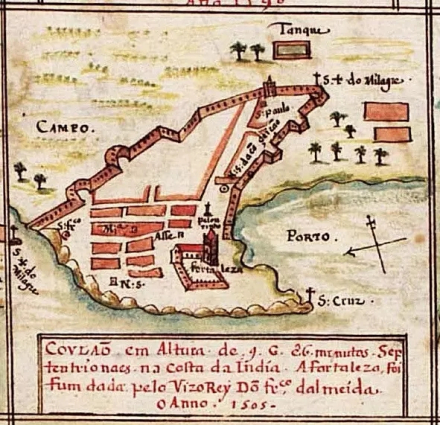 Tanque
S. ✝ do Milagre.
S. Paulo
CAMPO.
S. fr.co
Pelou
rinho
Fortaleza
N. S.
PORTO.
✝ do
Milagre
S: Cruz.
COVLAÕ em Altura de 9. G. 26. minutos. Sep
tentrionaes. na Costa da India. A Fortaleza, foi
fumdada pelo Vizo Rey Dõ fr.co dalmeida.
O Anno. 1505.